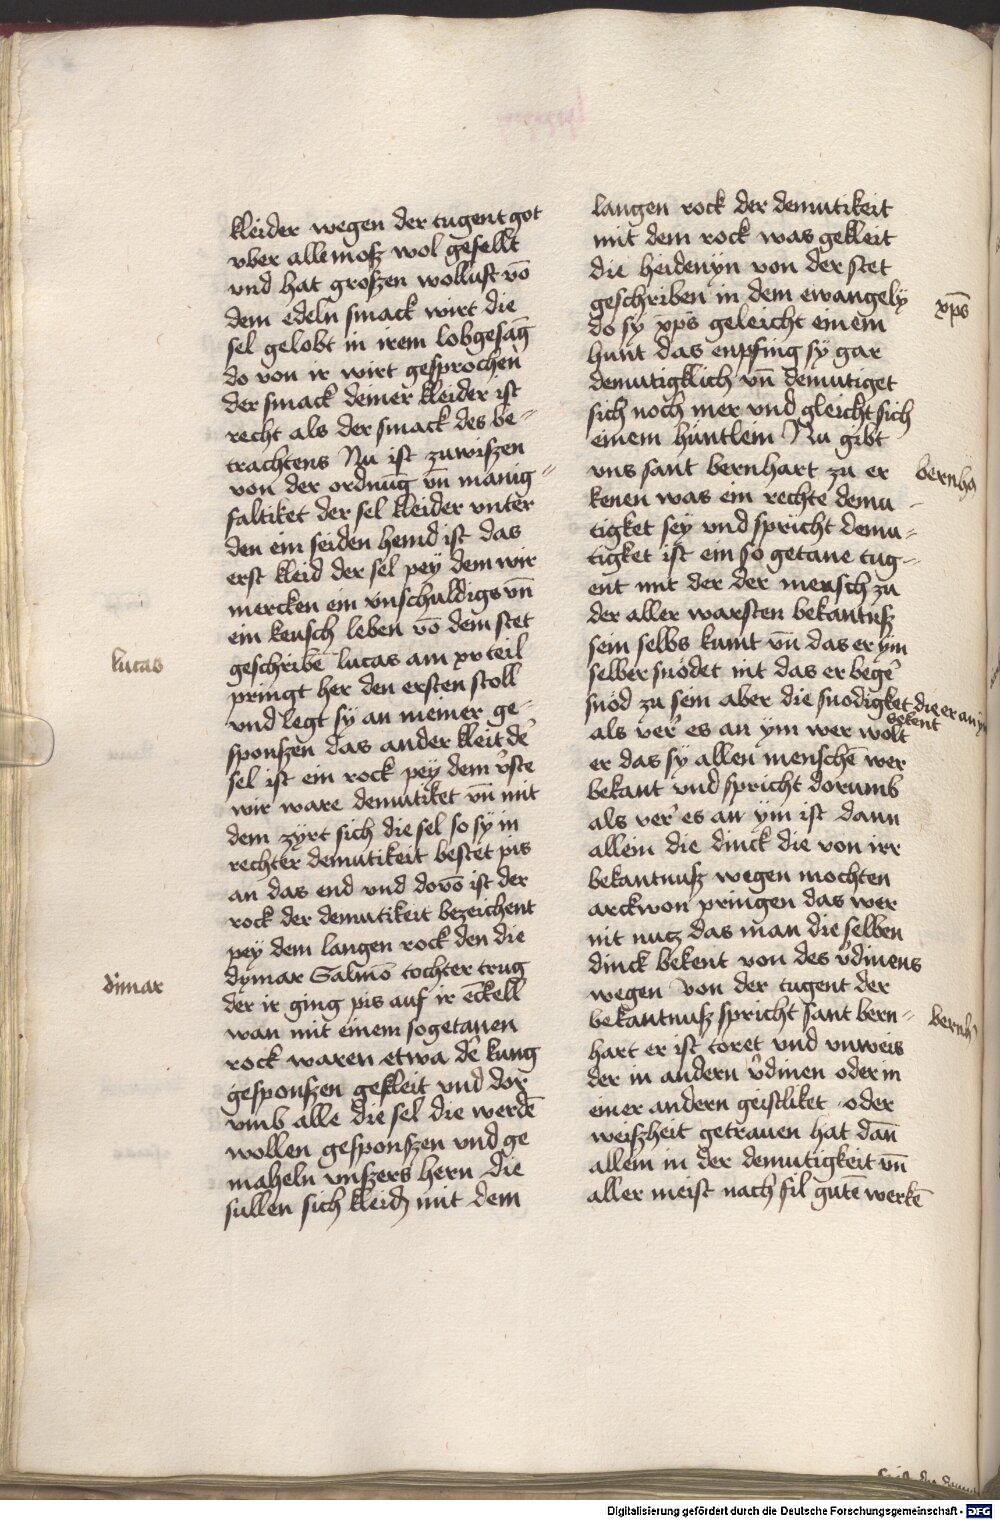 kleider wegen der tugent got
vber allemosz wol gefellt
vnd hat groszen wollust vō
dem edeln smack wirt die
sel gelobt in irem lobgesāg
do von ir wirt gesprochen
der smack deiner kleider ist
recht als der smack des be-
trachtens Nu ist zuwiszen
von der ordnūg vn̄ manig-
faltiket der sel kleider vnter
den ein seiden hemd ist das
erst kleid der sel pey dem wir
mercken ein vnschuldigs vn̄
ein keusch leben vō dem stet
geschribē lucas am xv teil
pringt her den ersten stoll
vnd legt sy an meiner ge-
sponszen das ander kleit de᷑
sel ist ein rock pey dem vste
wir ware demutiket vn̄ mit
dem zyrt sich die sel so sy in
rechter demutikeit bestet pis
an das end vnd dovō ist der
rock der demutikeit bezeichent
pey dem langen rock den die
dymar Salmō tochter trug
der ir ging pis auf ir ēckell
wan mit einem sogetanen
rock waren etwa de᷑ kung
gesponszen gekleit vnd dor
vmb alle die sel die werdē
wollen gesponszen vnd ge
maheln vnszers hern die
sullen sich kleidȝ mit dem
lucas
dimar
langen rock der demutikeit
mit dem rock was gekleit
die heidenyn von der stet
geschriben in dem ewangely
do sy xp̄s geleicht einem
hunt das enpfing sy gar
demutigklich vn̄ demutiget
sich noch mer vnd gleicht sich
einem huntlein Nu gibt
vns sant bernhart zu er
kenen was ein rechte demu-
tigket sey vnd spricht demu-
tigket ist ein so getane tug-
ent mit der der mensch zu
der aller warsten bekantnusz
sein selbs kumt vn̄ das er ym
selber snodet nit das er bege᷑
snod zu sein aber die snodigket die er an ym
bekent
als ver᷑ es an ym wer wolt
er das sy allen menschē wer
bekant vnd spricht dorumb
als ver᷑ es an ym ist dann
allein die dinck die von irr
bekantnusz wegen mochten
arckwon pringen das wer
nit nutz das man die selben
dinck bekent von des v᷑dinens
wegen Von der tugent der
bekantnusz spricht sant bern-
hart er ist toret vnd vnweis
der in andern v᷑dinen oder in
einer andern geistliket oder
weiszheit getrauen hat dan̄
allein in der demutigkeit vn̄
aller meist nach fil gutē werkē
xp̄s
bernha
bernh᷑